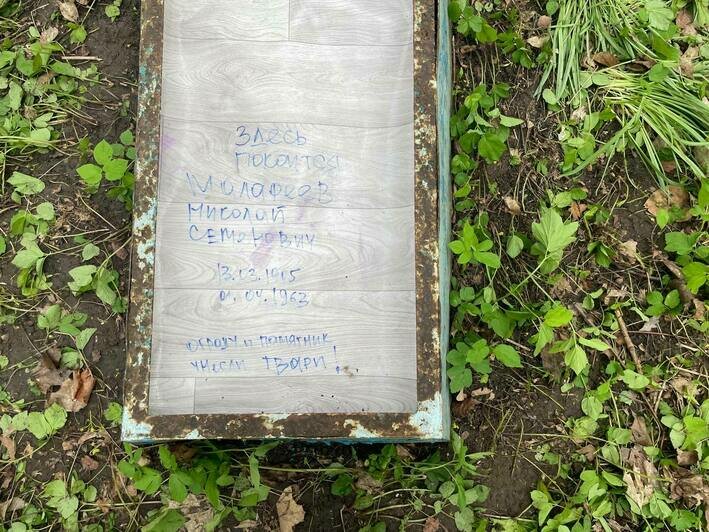 ЗДЕСЬ
ПОКОИТСЯ
МАЛАФЕЕВ
НИКОЛАЙ
СЕМЕНОВИЧ
13.03.1915
01.04.1963
ОГРАДУ И ПОМЯТНИК
УНЕСЛИ ТВАРИ!